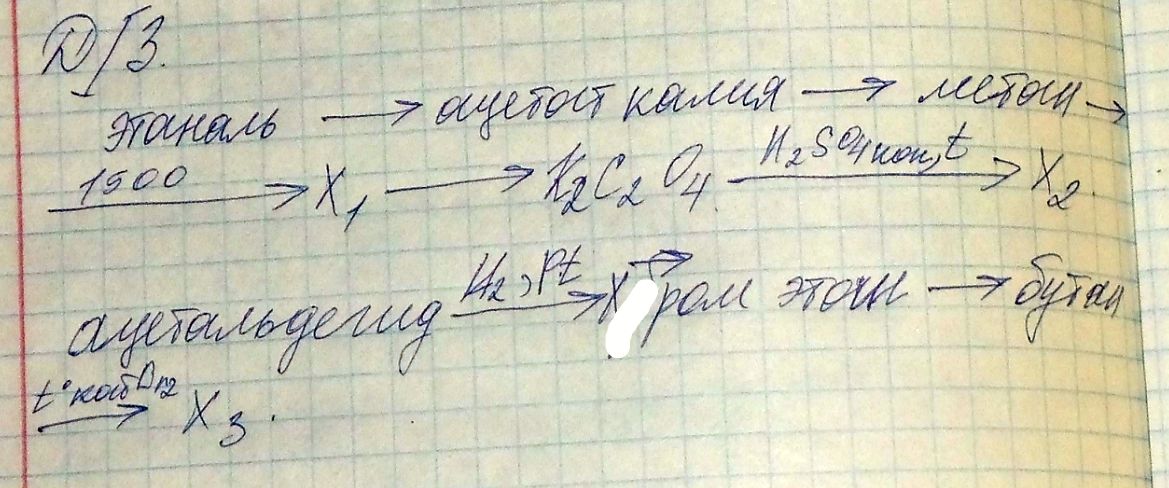 Д/З.
этаналь → ацетат калия → метан →
1500 → X₁ → K₂C₂O₄ H₂SO₄кон, t → X₂
ацетальдегид H₂, Pt → X → ром этан → бутан
t° кат → X₃.